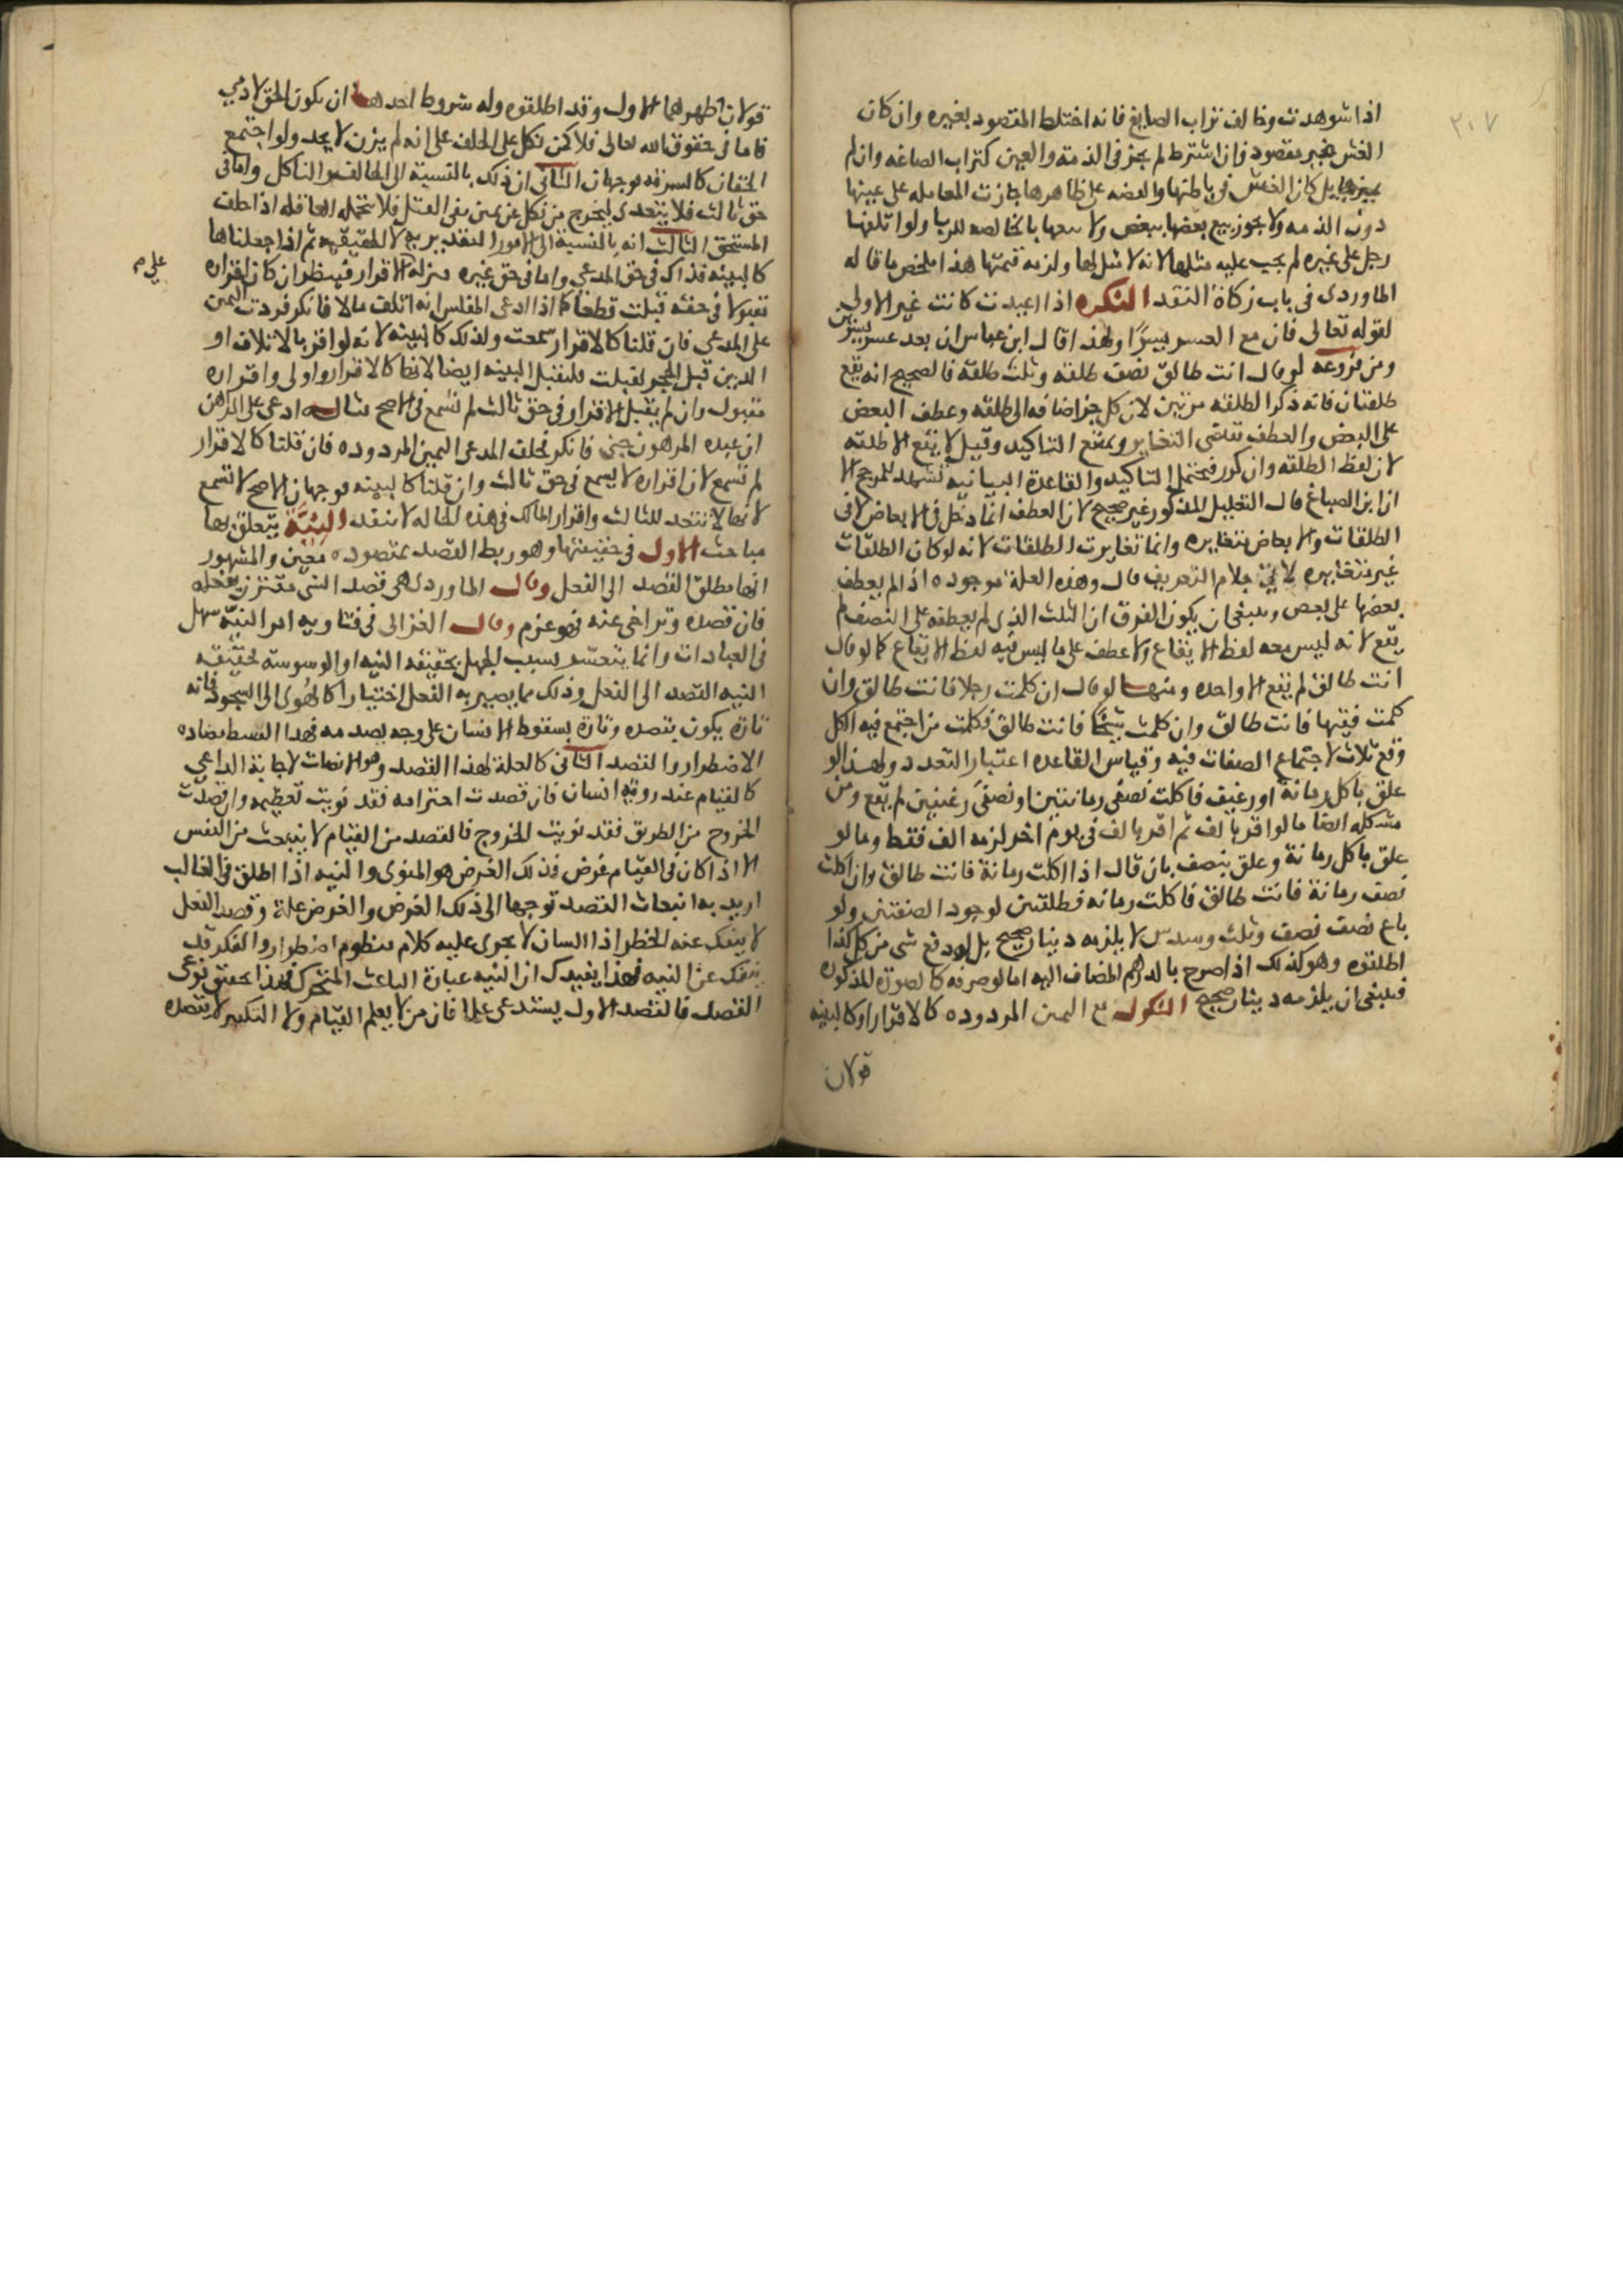 ٢٠٧
اذا شوهدت وخالف تراب الصايغ فانه اختلط المقصود بغيره وان كان
الغش غير مقصود فان اشترط لم يجز فى الذمة والعين كتراب الصاغه وان لم
يميزها بل كان الغش فى باطنها والفضه على ظاهرها جازت المعامله على عينها
دون الذمه ولا يجوز بيع بعضها ببعض ولا بيعها بالخالصه للربا ولو اتلفها
رجل على غيره لم يجب عليه مثلها لانه لا مثل لها ولزمه قيمتها هذا ملخص ما قاله
الماوردى فى باب زكاة النقد النكره اذا اعيدت كانت غير الاولى
لقوله تعالى فان مع العسر يسرا ولهذا قال ابن عباس لن يغلب عسر يسرين
ومن فروعه لو قال انت طالق نصف طلقه وثلث طلقه فالصحيح انه يقع
طلقتان فانه ذكر الطلقه مرتين لان كل جز اضافه الى طلقه وعطف البعض
على البعض والعطف تقاضى التغاير ويمنع التاكيد وقيل لا يقع الا طلقه
لان لفظ الطلقه وان كرر فيحتمل التاكيد والقاعدة البيانيه تشهد للمرجح الا
ان ابن الصباغ قال التعليل المذكور غير صحيح لان العطف انما دخل فى الابعاض لا فى
الطلقات والابعاض متغايره وانما تغايرت الطلقات لانه لو كان الطلقات
غير متغايره لاتى بلام التعريف قال وهذه العلة موجوده اذا لم يعطف
بعضها على بعض وينبغى ان يكون الفرق ان الثلث الذى لم يعطفه على النصف لم
يقع لانه ليس معه لفظ الايقاع ولا عطف على ما ليس فيه لفظ الايقاع كما لو قال
انت طالق لم يقع الا واحده ومنها لو قال ان كلمت رجلا فانت طالق وان
كلمت فقيها فانت طالق وان كلمت شيخا فانت طالق فكلمت من اجتمع فيه الكل
وقع ثلاث لاجتماع الصفات فيه وقياس القاعده اعتبار التعدد ولهذا لو
علق باكل رمانة او رغيف فاكلت نصفى رمانتين او نصفى رغيفين لم يقع ومن
مشكله ايضا ما لو اقر بالف ثم اقر بالف فى يوم اخر لزمه الف فقط وما لو
علق باكل رمانة وعلق بنصف بان قال اذا اكلت رمانة فانت طالق وان اكلت
نصف رمانة فانت طالق فاكلت رمانه فطلقتين لوجود الصفتين ولو
باع نصف نصف وثلث وسدس لا يلزمه دينار صحيح بل له دفع شى من كل كذا
اطلقوه وهو كذلك اذا صرح بالدرهم المضاف اليه اما لو صرفه كالصورة المذكوره
فينبغى ان يلزمه دينار صحيح النكول مع اليمين المردوده كالاقرار او كالبينه
قولان
قولان اظهرهما الاول وقد اطلقوه وله شروط احدها ان يكون الحق لادمي
فاما فى حقوق الله تعالى فلا كمن نكل على الحلف على انه لم يزن لا يحد ولو اجتمع
الحقان كالسرقه فوجهان الثانى ان ذلك بالنسبة الى الحالف والناكل واما فى
حق ثالث فلا يتعدى ليخرج من نكل عن يمين نفى القتل فلا تتحمله العاقله اذا حلف
المستحق الثالث انه بالنسبة الى الامور التقديريه لا الحقيقيه ثم اذا جعلناها
كالبينه فذاك فى حق المدعي واما فى حق غيره منزله الاقرار فينظر ان كان اقراره
علي م
مقبولا فى حقه قبلت قطعا كما اذا ادعى المفلس انه اتلف مالا فانكر فردت اليمين
على المدعي فان قلنا كالاقرار سمعت ولذلك كالبينه لانه لو اقر بالاتلاف او
الدين قبل الحجر لقبلت فلتقبل البينه ايضا لانها كالاقرار واولى واقراره
مقبول وان لم يقبل الاقرار فى حق ثالث لم تسمع فى الاصح مثاله ادعى على الراهن
ان عبده المرهون جنى فانكر فحلف المدعى اليمين المردوده فان قلنا كالاقرار
لم تسمع لان اقراره لا يسمع فى حق ثالث وان قلنا كالبينه فوجهان الاصح لا تسمع
لانها لا تتعد للثالث واقرار المالك فى هذه الحاله لا ينفد النيّة يتعلق بها
مباحث الاول فى حقيقتها وهو ربط القصد بمقصوده معين والمشهور
انها مطلق القصد الى الفعل وقال الماوردى هى قصد الشى مقترن بفعله
فان قصده وتراخى عنه فهو عزم وقال الغزالى فى فتاويه امر النيّة سهل
فى العبادات وانما يتعسر بسبب الجهل بحقيقه النيه او الوسوسة فحقيقه
النيه القصد الى الفعل وذلك مما يصير به الفعل اختيارا كالهوى الى السجود فانه
تارة يكون بقصده وتارة بسقوط الانسان على وجهه بصدمه فهذا القسط يضاده
الاضطرار والقصد الثانى كالعلة لهذا القصد وهو الانبعاث لاجابة الداعي
كالقيام عند روية انسان فان قصدت احترامه فقد نويت تعظيمه وان قصدت
الخروج من الطريق فقد نويت الخروج فالقصد من القيام لا ينبعث من النفس
الا اذا كان فى القيام غرض فذلك الغرض هو المنوى والنيه اذا اطلق فى الغالب
اريد به انبعاث القصد توجها الى ذلك الغرض والغرض علة وقصد الفعل
لا ينفك عنه الخطر اذ اللسان لا يجرى عليه كلام منظوم اضطرار والفكر قد
ينفك عن النيه فهذا يفيدك ان النيه عبارة الباعث المتحرك فهذا تحقق نوعى
القصد فالقصد الاول يستدعى علما فان من لا يعلم القيام ولا التكبير لا يقصده